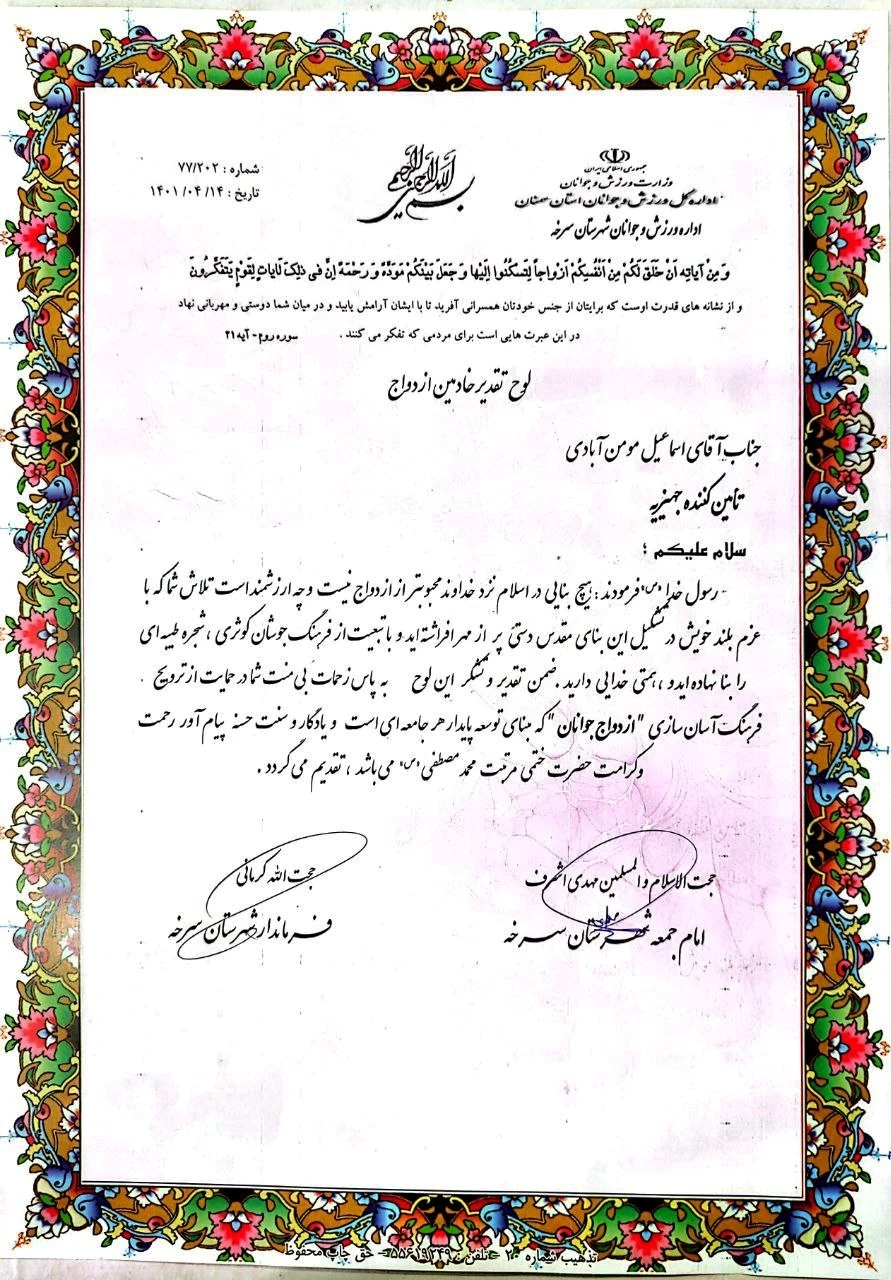 جمهوری اسلامی ایران
وزارت ورزش و جوانان
اداره کل ورزش و جوانان استان سمنان
اداره ورزش و جوانان شهرستان سرخه
بسم الله الرحمن الرحیم
شماره : ۷۷/۲۰۲
تاریخ : ۱۴۰۱/۰۴/۱۴
وَ مِنْ آیاتِهِ اَنْ خَلَقَ لَکُمْ مِنْ اَنْفُسِکُمْ اَزْواجاً لِتَسکُنُوا اِلَیْها وَ جَعَلَ بَیْنَکُمْ مَوَدَّةً وَ رَحْمَةً اِنَّ فی ذلِکَ لَایاتٍ لِقَومٍ یَتَفَکَّرُونَ
و از نشانه های قدرت اوست که برایتان از جنس خودتان همسرانی آفرید تا با ایشان آرامش یابید و در میان شما دوستی و مهربانی نهاد
در این عبرت هایی است برای مردمی که تفکر می کنند . سوره روم - آیه ۲۱
لوح تقدیر خادمین ازدواج
جناب آقای اسماعیل مومن آبادی
تامین کننده جهیزیه
سلام علیکم ؛
رسول خدا (ص) فرمودند : هیچ بنایی در اسلام نزد خداوند محبوبتر از ازدواج نیست و چه ارزشمند است تلاش شما که با
عزم بلند خویش در تشکیل این بنای مقدس دستی پر از مهر افراشته اید و با تبعیت از فرهنگ جوشان کوثری ، شجره طیبه ای
را بنا نهاده اید و ، همتی خدایی دارید . ضمن تقدیر و تشکر این لوح به پاس زحمات بی منت شما در حمایت از ترویج
فرهنگ آسان سازی "ازدواج جوانان" که مبنای توسعه پایدار هر جامعه ای است و یادگار و سنت حسنه پیام آور رحمت
و کرامت حضرت ختمی مرتبت محمد مصطفی (ص) می باشد ، تقدیم می گردد .
حجت الاسلام و المسلمین مهدی اشرف
امام جمعه شهرستان سرخه
حجت الله کرمانی
فرماندار شهرستان سرخه
تذهیب شماره ۲۰ - تلفن : ۵۵۶۱۹۳۴۹ - حق چاپ محفوظ